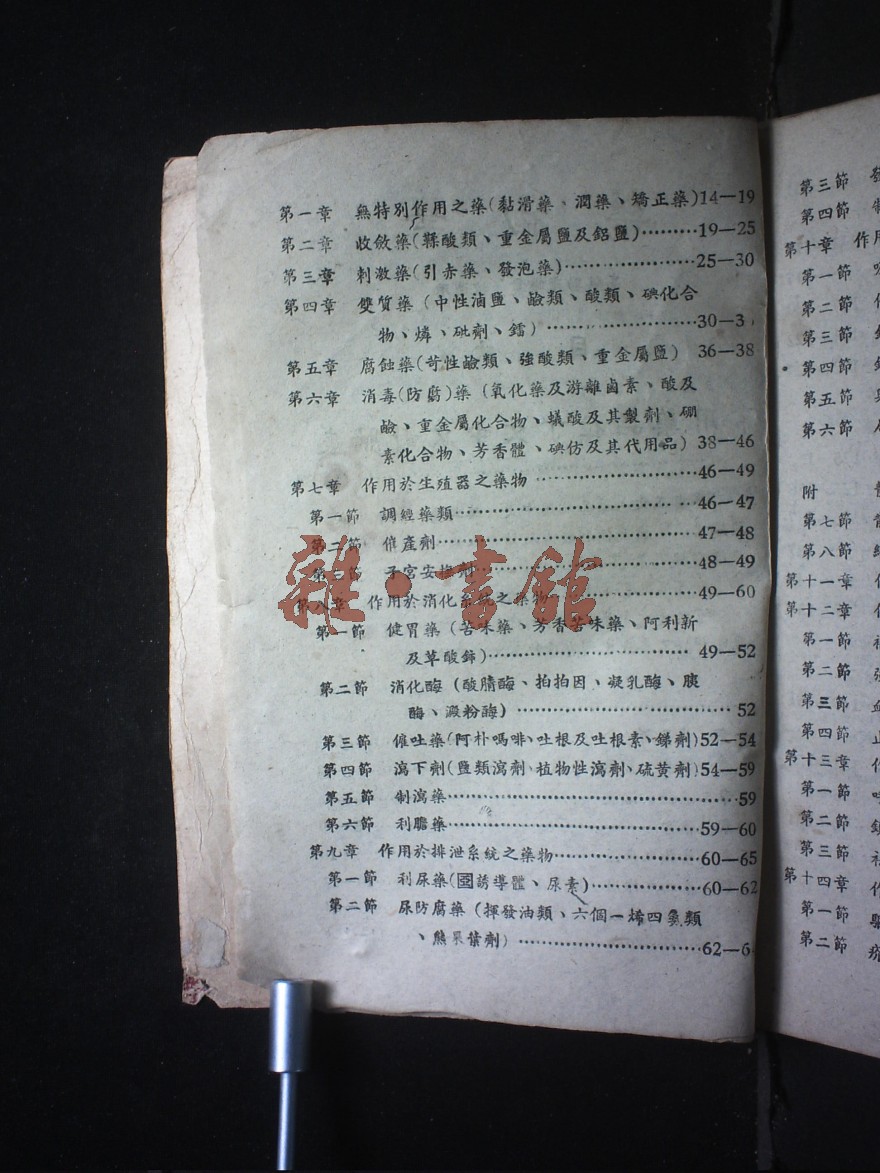 第一章 無特別作用之藥(黏滑藥、潤藥、矯正藥)14—19
第二章 收斂藥(鞣酸類、重金屬鹽及鋁鹽)………19—25
第三章 刺激藥(引赤藥、發泡藥)………………25—30
第四章 雙質藥(中性滷鹽、鹼類、酸類、碘化合
物、燐、砒劑、鐳)…………………30—3
第五章 腐蝕藥(苛性鹼類、強酸類、重金屬鹽) 36—38
第六章 消毒(防腐)藥(氧化藥及游離鹵素、酸及
鹼、重金屬化合物、蟻酸及其製劑、硼
素化合物、芳香體、碘仿及其代用品)38—46
第七章 作用於生殖器之藥物…………………46—49
第一節 調經藥類…………………………46—47
第二節 催產劑……………………………47—48
第三節 子宮安撫劑………………………48—49
第八章 作用於消化系統之藥物………………49—60
第一節 健胃藥(苦味藥、芳香苦味藥、阿利新
及草酸鈰)………………………… 49—52
第二節 消化酶(酸腈酶、拍拍因、凝乳酶、胰
酶、澱粉酶)…………………………… 52
第三節 催吐藥(阿朴嗎啡、吐根及吐根素、銻劑)52—54
第四節 瀉下劑(鹽類瀉劑、植物性瀉劑、硫黃劑)54—59
第五節 制瀉藥………………………………………59
第六節 利膽藥…………………………………59—60
第九章 作用於排泄系統之藥物…………………60—65
第一節 利尿藥(圜誘導體、尿素)……………60—62
第二節 尿防腐藥(揮發油類、六個一烯四氮類
、熊果葉劑)…………………………62—6
第三節
第四節
第十章 作用
第一節
第二節
第三節
第四節
第五節
第六節
附
第七節
第八節
第十一章
第十二章
第一節
第二節
第三節
第四節
第十三章
第一節
第二節
第三節
第十四章
第一節
第二節
雜·書館